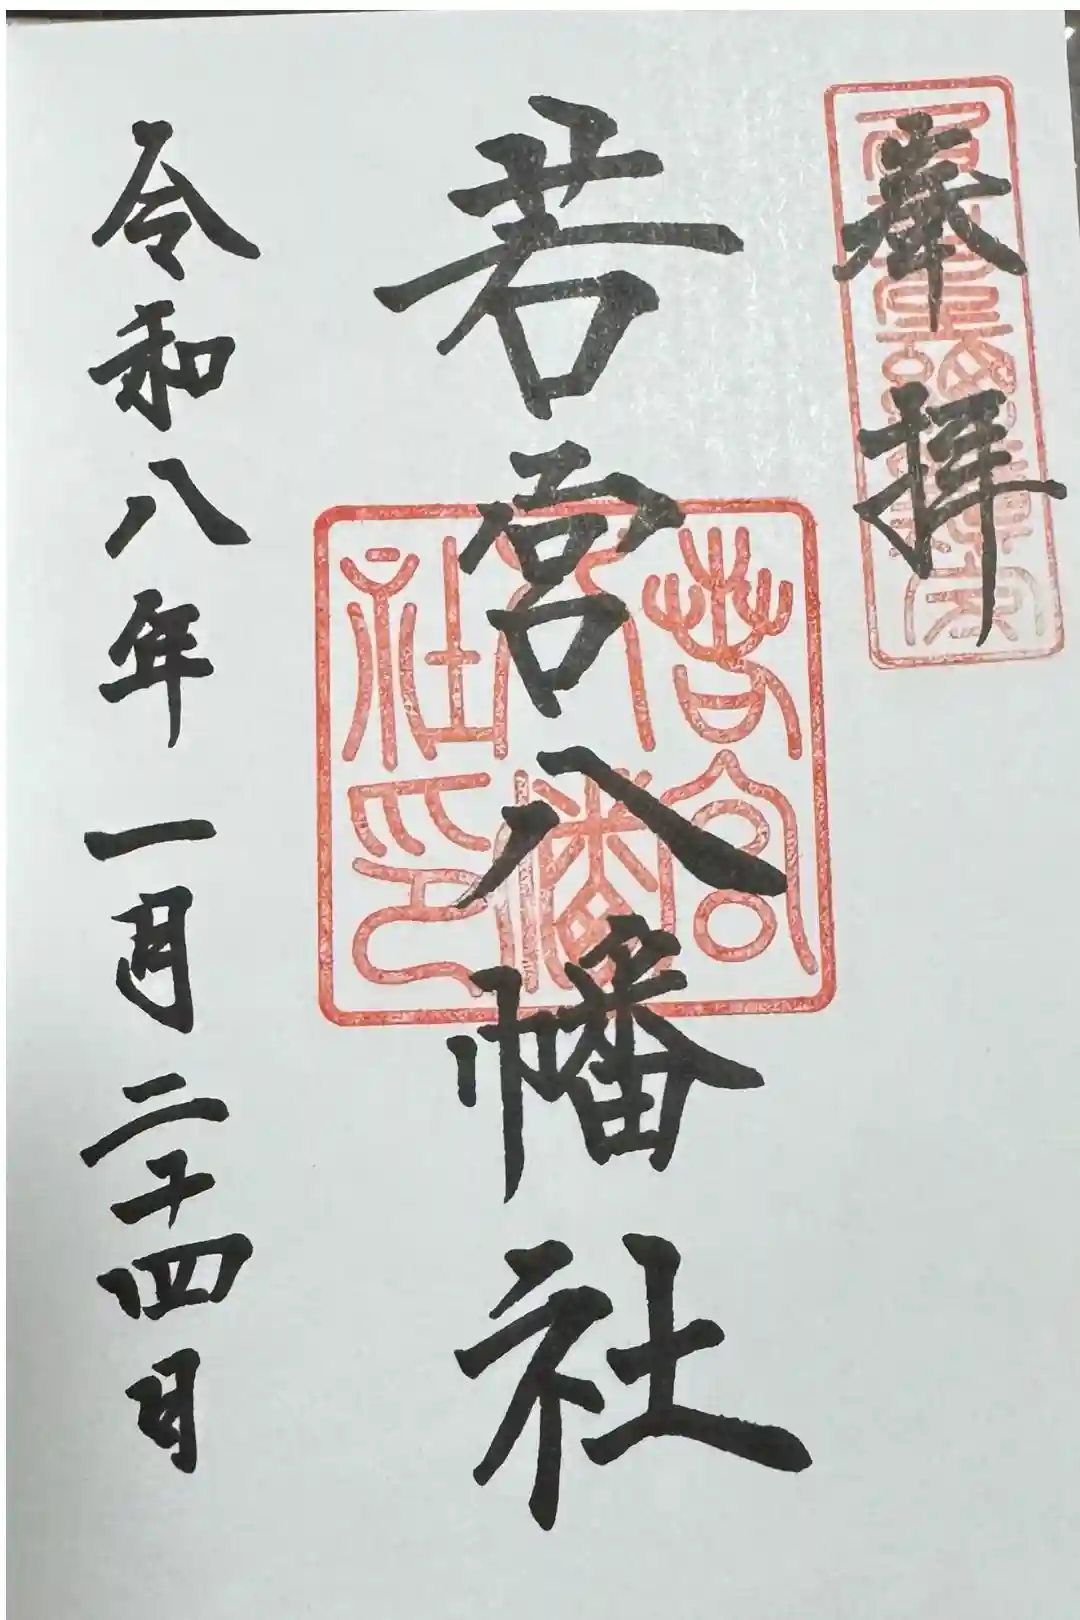 奉拝
若宮八幡社
若宮
八幡
社印
令和八年一月二十四日